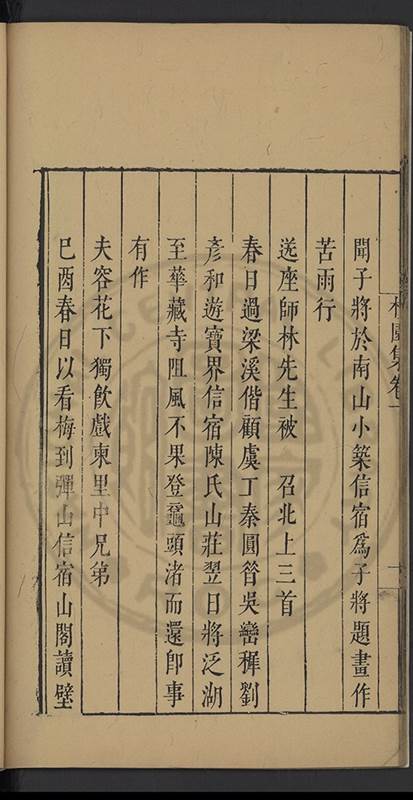 集卷一
聞子將於南山小築信宿爲子將題畫作
苦雨行
送座師林先生被　召北上三首
春日過梁溪偕顧虞工秦圓晉吳巒穉劉
彥和遊寶界信宿陳氏山莊翌日將泛湖
至華藏寺阻風不果登黿頭渚而還卽事
有作
夫容花下獨飲戲柬里中兄弟
巳酉春日以看梅到彈山信宿山閣讀壁